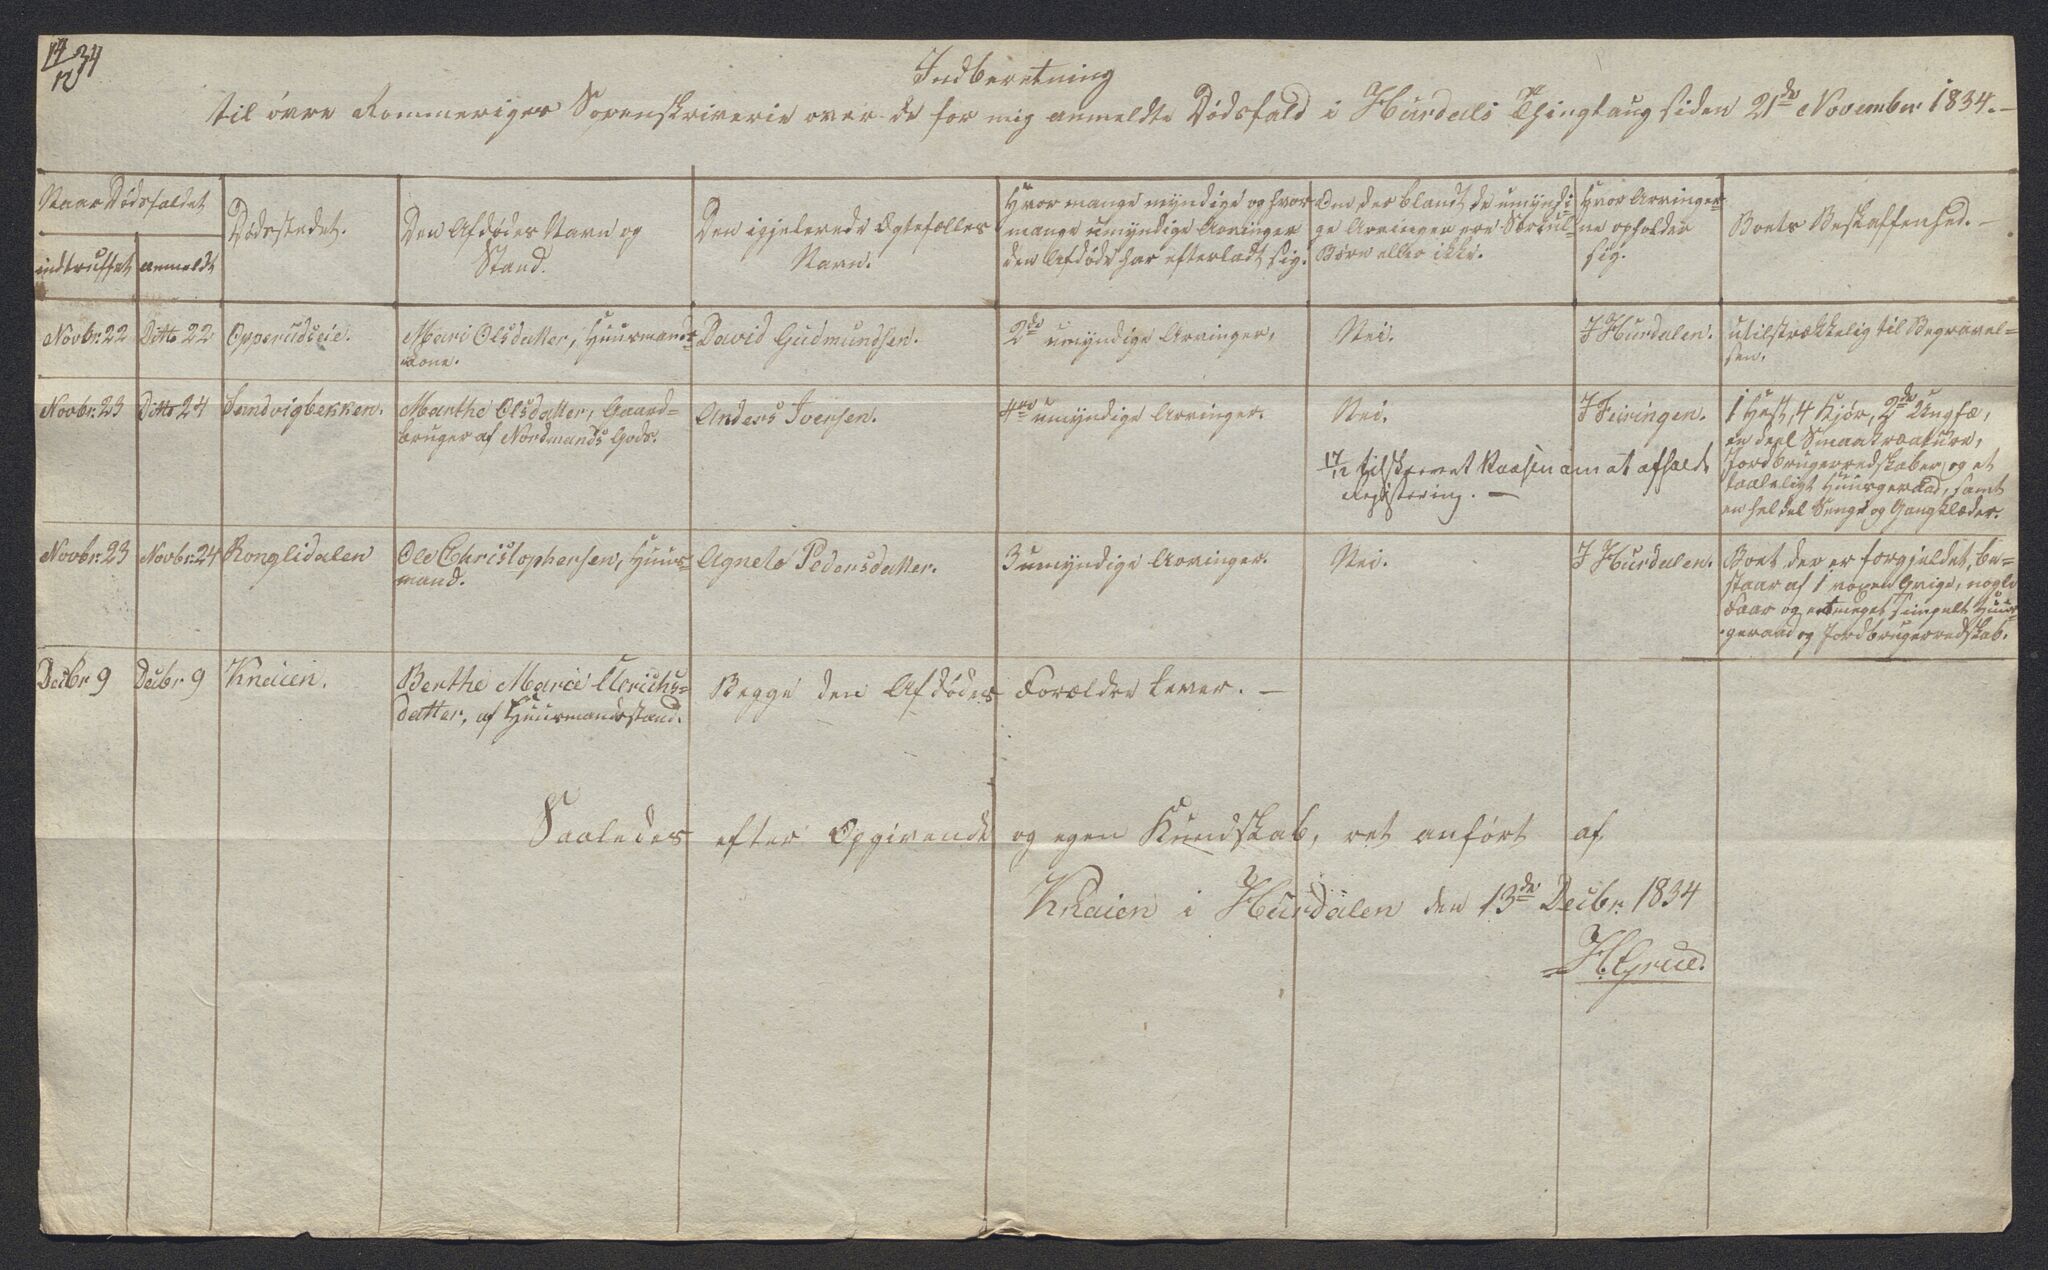 14/12 34
Indberetning
til øvre Rommeriges Sorenskriverie over de for mig anmeldte Dødsfald i Hurdals Thinglaug siden 21de November 1834. –
Naar Dødsfaldet
indtruffet
anmeldt
Dødsstedet.
Den Afdødes Navn og
Stand.
Den igjelevende Ægtefælles
Navn.
Hvor mange myndige og hvor
mange umyndige Arvinger
den Afdøde har efterladt sig.
Om der blandt de umyndi-
ge Arvinger ere Særkul-
Børn eller ikke.
Hvor Arvinger-
ne opholder
sig.
Boets Beskaffenhed. –
Novbr. 22
Ditto 22
Opperudseie.
Mari Olsdatter, Huusmands-
kone.
David Gudmundsen.
2de umyndige Arvinger.
Nei.
I Hurdalen.
utilstrækkelig til Begravel-
sen.
Novbr. 23
Ditto 24
Sandvigbekken.
Marthe Olsdatter, Gaard-
bruger af Nordmands Gods.
Anders Iversen.
4re umyndige Arvinger.
Nei.
I Feiringen.
1 Hest, 4 Kjør, 2de Ungfæ,
en deel Smaakreature,
Jordbrugerredskaber og et
taaleligt Huusgeraad, samt
en hel del Senge og Gangklæder.
17/12 tilskrevet Raasen om at afholde
Registering. –
Novbr. 23
Novbr. 24
Ronglidalen
Ole Christophersen, Huus-
mand.
Agnete Pedersdatter.
3 umyndige Arvinger.
Nei.
I Hurdalen.
Boet der er forgjeldet, be-
staar af 1 voxen Qvige, nogle
Faar og et meget simpelt Huus-
geraad og Jordbrugerredskab.
Decbr 9
Decbr 9
Knaien.
Berthe Marie Ulrichs-
datter, af Huusmandsstand.
Begge den Afdødes Forældre lever. –
Saaledes efter Opgivende og egen Kundskab, ret anført af
Knaien i Hurdalen den 13de Decbr. 1834
H. Grue.